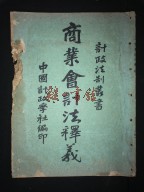 財政法制叢書
商業會計法釋義
中國財政學社編印